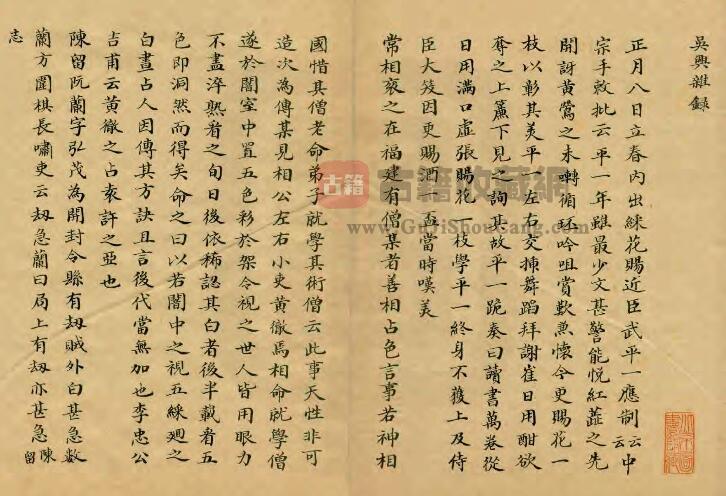 吳興雜錄
正月八日立春內出綵花賜近臣武平一應制云云中
宗手敕批云平一年雖最少文甚警能悅紅蘂之先
開訝黃鶯之未囀循環吟咀賞歎兼懷今更賜花一
枝以彰其美平一左右交揷舞蹈拜謝崔日用酣欲
奪之上簾下見之詢其故平一跪奏曰讀書萬卷從
日用滿口虛張賜花一枝學平一終身不獲上及侍
臣大笑因更賜酒一盃當時嘆美
常相袞之在福建有僧某者善相占色言事若神相
國惜其僧老命弟子就學其術僧云此事天性非可
造次為傳某見相公左右小吏黃徹焉相命就學僧
遂於闇室中置五色彩於架令視之世人皆用眼力
不盡淬熟看之旬日後依稀認其白者後半載看五
色即洞然而得矣命之曰以若闇中之視五綵廻之
白晝占人因傳其方訣且言後代當無加也李忠公
吉甫云黃徹之占袁許之亞也
陳留阮蘭字弘茂為開封令縣有刼賊外白甚急數
蘭方圍棋長嘯吏云刼急蘭曰局上有刼亦甚急陳留
志
古籍
古籍收藏網
www.GuJiShouCang.com